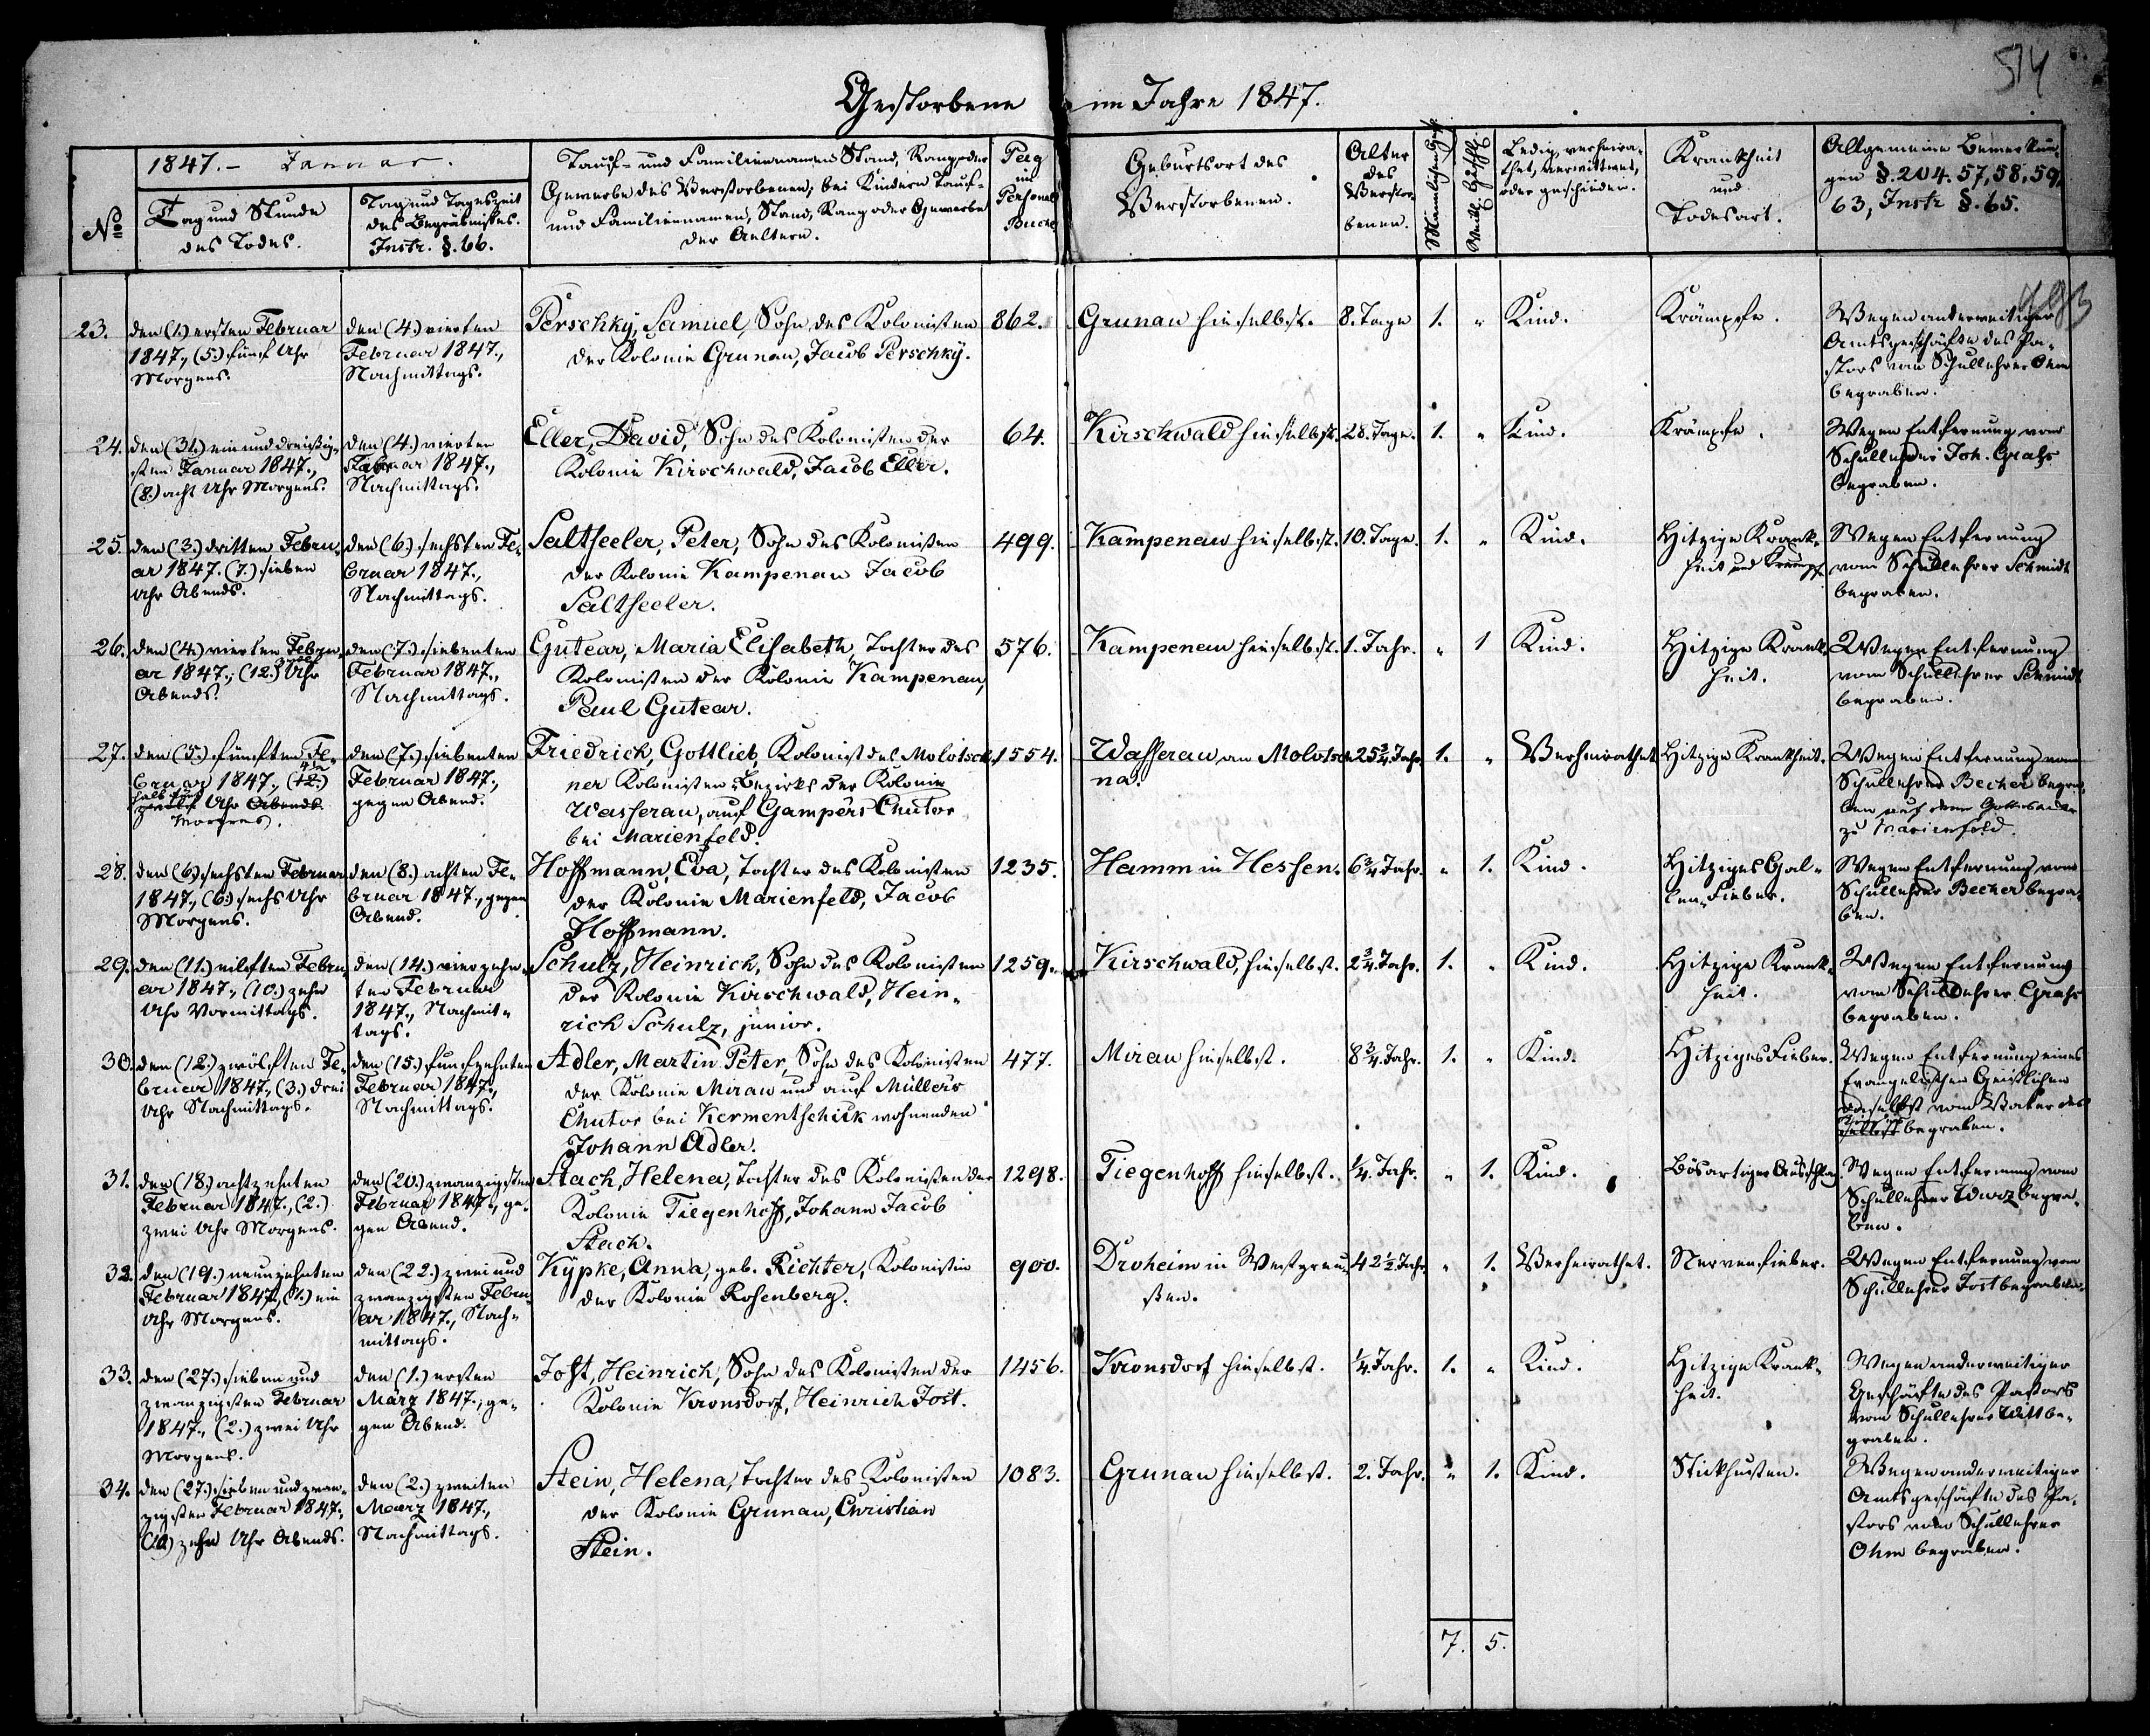 514
Gestorbene im Jahre 1847.
No
1847. - Januar.
Tag und Stunde
des Todes.
Tag und Tageszeit
des Begräbnisses.
Instr. §. 66.
Tauf- und Familiennamen, Stand, Rang oder
Gewerbe des Verstorbenen, bei Kindern Tauf-
und Familiennamen, Stand, Rang oder Gewerbe
der Aeltern.
Pag
im
Personal
Buche
Geburtsort des
Verstorbenen.
Alter
des
Verstor-
benen.
Männlichen Geschl.
Weibl. Geschl.
Ledig, verheira-
thet, verwittwet,
oder geschieden.
Krankheit
und
Todesart.
Allgemeine Bemerkun-
gen §. 204. 57, 58, 59,
63, Instr §. 65.
23.
den (1.) ersten Februar
1847., (5.) fünf Uhr
Morgens.
den (4.) vierten
Februar 1847.,
Nachmittags.
Perschky, Samuel, Sohn des Kolonisten
der Kolonie Grunau, Jacob Perschky.
862.
Grunau hieselbst.
8. Tage
1.
"
Kind.
Krämpfe.
Wegen anderweitiger
Amtsgeschäfte des Pa-
stors vom Schullehrer Ohm
begraben.
24.
den (31.) ein und dreißig-
sten Januar 1847.,
(8.) acht Uhr Morgens.
den (4.) vierten
Februar 1847.,
Nachmittags.
Eller, David, Sohn des Kolonisten der
Kolonie Kirschwald, Jacob Eller.
64.
Kirschwald hieselbst.
28. Tage.
1.
"
Kind.
Krämpfe.
Wegen Entfernung vom
Schullehrer Joh. Grahs
begraben.
25.
den (3.) dritten Febru-
ar 1847. (7.) sieben
Uhr Abends.
den (6.) sechsten Fe-
bruar 1847.,
Nachmittags.
Saltseeler, Peter, Sohn des Kolonisten
der Kolonie Kampenau Jacob
Saltseeler.
499.
Kampenau hieselbst.
10. Tage.
1.
"
Kind.
Hitzige Krank-
heit und Krämpfe
Wegen Entfernung
vom Schullehrer Schmidt
begraben.
26.
den (4.) vierten Febru-
ar 1847., (12.) zwölf Uhr
Abends.
den (7.) siebenten
Februar 1847.,
Nachmittags.
Gutear, Maria Elisabeth, Tochter des
Kolonisten der Kolonie Kampenau,
Paul Gutear.
576.
Kampenau hieselbst.
1. Jahr.
"
1
Kind.
Hitzige Krank-
heit.
Wegen Entfernung
vom Schullehrer Schmidt
begraben.
27.
den (5.) fünften Fe-
bruar 1847., (12.)
halb fünf
zwölf Uhr Abends
Morgens.
den (7.) siebenten
Februar 1847.,
gegen Abend.
Friedrich, Gottlieb, Kolonist des Molotsch-
ner Kolonisten-Bezirks der Kolonie
Wasserau, auf Gampers Chutor
bei Marienfeld.
1554.
Wasserau, an Molotsch-
na.
25 3/4. Jahr.
1.
"
Verheirathet
Hitzige Krankheit.
Wegen Entfernung vom
Schullehrer Becher begra-
ben auf dem Gottesacker
zu Marienfeld.
28.
den (6.) sechsten Februar
1847., (6.) sechs Uhr
Morgens.
den (8.) achten Fe-
bruar 1847., gegen
Abend.
Hoffmann, Eva, Tochter des Kolonisten
der Kolonie Marienfeld, Jacob
Hoffmann.
1235.
Hamm in Hessen.
6 3/4 Jahr.
"
1.
Kind.
Hitziges Gal-
len-Fieber.
Wegen Entfernung vom
Schullehrer Becher begra-
ben.
29.
den (11.) eilften Febru-
ar 1847., (10.) zehn
Uhr Vormittags.
den (14.) vierzehn-
ten Februar
1847., Nachmit-
tags.
Schulz, Heinrich, Sohn des Kolonisten
der Kolonie Kirschwald, Hein-
rich Schulz, junior.
1259.
Kirschwald, hieselbst.
2 3/4. Jahr.
1.
"
Kind.
Hitzige Krank-
heit.
Wegen Entfernung
vom Schullehrer Grahs
begraben.
30.
den (12.) zwölften Fe-
bruar 1847., (3.) drei
Uhr Nachmittags.
den (15.) funfzehnten
Februar 1847.,
Nachmittags.
Adler, Martin Peter, Sohn des Kolonisten
der Kolonie Mirau und auf Müllers
Chutor bei Kermentschick wohnenden
Johann Adler.
477.
Mirau hieselbst.
8 3/4. Jahr.
1.
"
Kind.
Hitziges Fieber.
Wegen Entfernung eines
Evangelischen Geistlichen
daselbst vom Vater des
selbst begraben.
31.
den (18.) achtzehnten
Februar 1847., (2.)
zwei Uhr Morgens.
den (20.) zwanzigsten
Februar 1847., ge-
gen Abend.
Stach, Helena, Tochter des Kolonisten der
Kolonie Tiegenhoff, Johann Jacob
Stach.
1298.
Tiegenhoff hieselbst.
1/4. Jahr.
"
1.
Kind.
Bösartiger Ausschlag.
Wegen Entfernung vom
Schullehrer begra-
ben.
32.
den (19.) neunzehnten
Februar 1847., (1.) ein
Uhr Morgens.
den (22.) zwei und
zwanzigsten Febru-
ar 1847., Nach-
mittags.
Kypke, Anna, geb. Richter, Kolonistin
der Kolonie Rosenberg.
900.
Droheim in Westpreu-
ßen.
42 1/2 Jahr.
"
1.
Verheirathet.
Nervenfieber.
Wegen Entfernung vom
Schullehrer Jost begraben.
33.
den (27.) sieben und
zwanzigsten Februar
1847., (2.) zwei Uhr
Morgens.
den (1.) ersten
März 1847., ge-
gen Abend.
Jost, Heinrich, Sohn des Kolonisten der
Kolonie Kronsdorf, Heinrich Jost.
1456.
Kronsdorf hieselbst.
1/4. Jahr.
1.
"
Kind.
Hitzige Krank-
heit.
Wegen anderweitiger
Geschäfte des Pastors
vom Schullehrer Witt be-
graben.
34.
den (27.) sieben und zwan-
zigsten Februar 1847.,
(10.) zehn Uhr Abends.
den (2.) zweiten
Maerz 1847.,
Nachmittags.
Stein, Helena, Tochter des Kolonisten
der Kolonie Grunau, Christian
Stein.
1083.
Grunau hieselbst.
2. Jahr.
"
1.
Kind.
Stickhusten.
Wegen anderweitiger
Amtsgeschäfte des Pa-
stors vom Schullehrer
Ohm begraben.
7.
5.